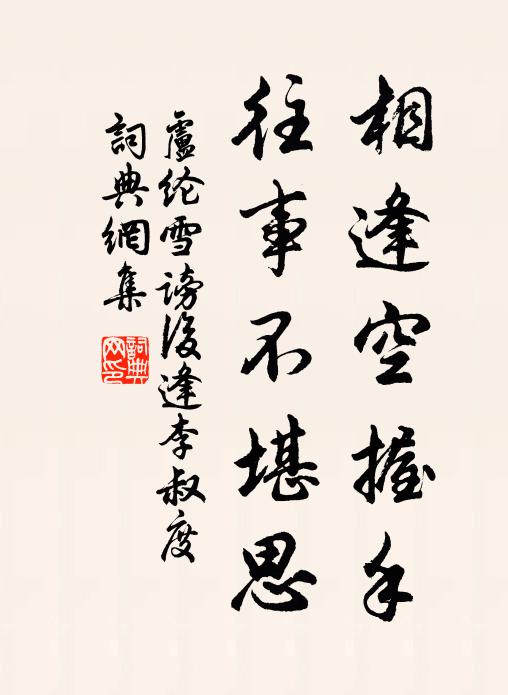 相逢空握手
往事不堪思
盧纶雪謗後逢李叔度
詞典網集
詞典网印